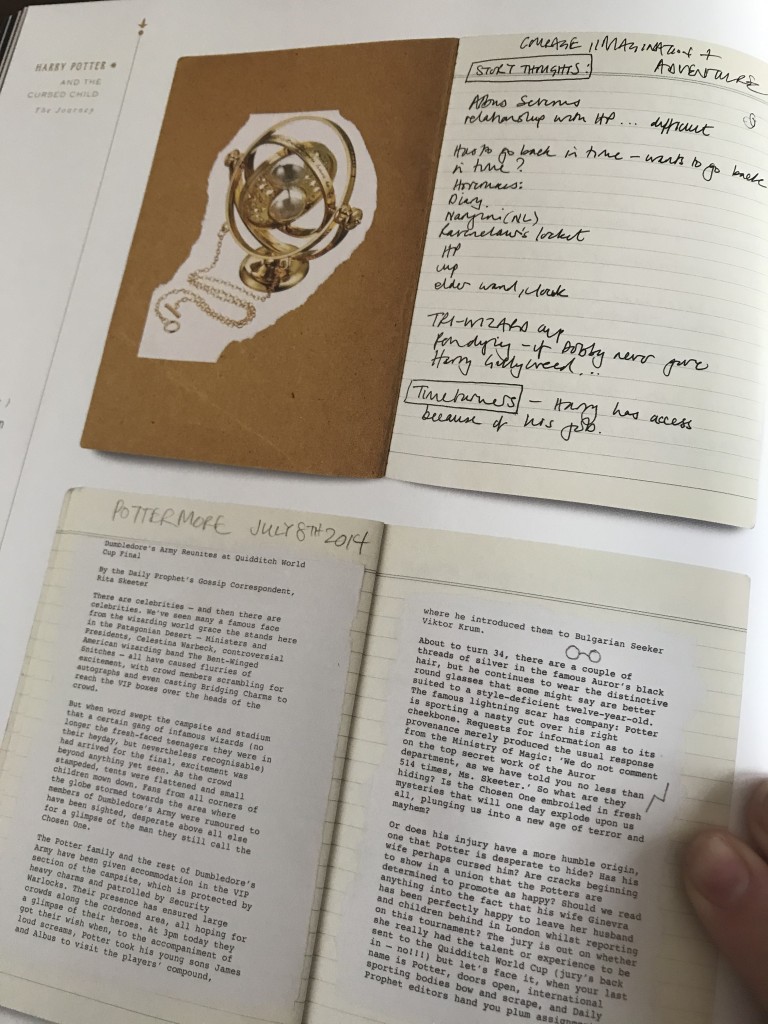 HARRY POTTER
AND THE
CURSED CHILD
The Journey
COURAGE, IMAGINATION +
ADVENTURE
STORY THOUGHTS:
Albus Severus
relationship with HP... difficult
Has to go back in time – wants to go back
in time?
Horcruxes:
Diary.
Nangini (NL)
Ravenclaw's locket
HP
cup
elder wand, cloak
TRI-WIZARD cup
– if Dobby never gave
Harry Gillyweed...
Timeturners – Harry has access
because of his job.
POTTERMORE JULY 8TH 2014
Dumbledore's Army Reunites at Quidditch World
Cup Final
By the Daily Prophet's Gossip Correspondent,
Rita Skeeter
There are celebrities – and then there are
celebrities. We've seen many a famous face
from the wizarding world grace the stands here
in the Patagonian Desert – Ministers and
Presidents, Celestina Warbeck, controversial
American wizarding band The Bent-Winged
Snitches – all have caused flurries of
excitement, with crowd members scrambling for
autographs and even casting Bridging Charms to
reach the VIP boxes over the heads of the
crowd.
But when word swept the campsite and stadium
that a certain gang of infamous wizards (no
longer the fresh-faced teenagers they were in
their heyday, but nevertheless recognisable)
had arrived for the final, excitement was
beyond anything yet seen. As the crowd
stampeded, tents were flattened and small
children mown down. Fans from all corners of
the globe stormed towards the area where
members of Dumbledore's Army were rumoured to
have been sighted, desperate above all else
for a glimpse of the man they still call the
Chosen One.
The Potter family and the rest of Dumbledore's
Army have been given accommodation in the VIP
section of the campsite, which is protected by
heavy charms and patrolled by Security
Warlocks. Their presence has ensured large
crowds along the cordoned area, all hoping for
a glimpse of their heroes. At 3pm today they
got their wish when, to the accompaniment of
loud screams, Potter took his young sons James
and Albus to visit the players' compound,
where he introduced them to Bulgarian Seeker
Viktor Krum.
About to turn 34, there are a couple of
threads of silver in the famous Auror's black
hair, but he continues to wear the distinctive
round glasses that some might say are better
suited to a style-deficient twelve-year-old.
The famous lightning scar has company: Potter
is sporting a nasty cut over his right
cheekbone. Requests for information as to its
provenance merely produced the usual response
from the Ministry of Magic: 'We do not comment
on the top secret work of the Auror
department, as we have told you no less than
514 times, Ms. Skeeter.' So what are they
hiding? Is the Chosen One embroiled in fresh
mysteries that will one day explode upon us
all, plunging us into a new age of terror and
mayhem?
Or does his injury have a more humble origin,
one that Potter is desperate to hide? Has his
wife perhaps cursed him? Are cracks beginning
to show in a union that the Potters are
determined to promote as happy? Should we read
anything into the fact that his wife Ginevra
has been perfectly happy to leave her husband
and children behind in London whilst reporting
on this tournament? The jury is out on whether
she really had the talent or experience to be
sent to the Quidditch World Cup (jury's back
in – no!!!) but let's face it, when your last
name is Potter, doors open, international
sporting bodies bow and scrape, and Daily
Prophet editors hand you plum